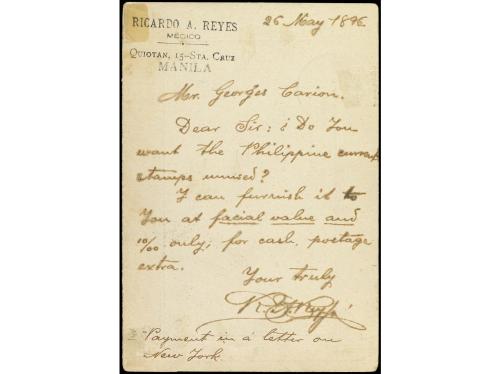 RICARDO A. REYES
MÉDICO
QUIOTAN, 15-STA. CRUZ
MANILA
26 May 1896
Mr. Georges Carion.
Dear Sir: ¿ Do You
want the Philippine current
stamps unused?
I can furnish it to
You at facial value and
10% only; for cash, postage
extra.
Your truly
Payment in a letter on
New York.